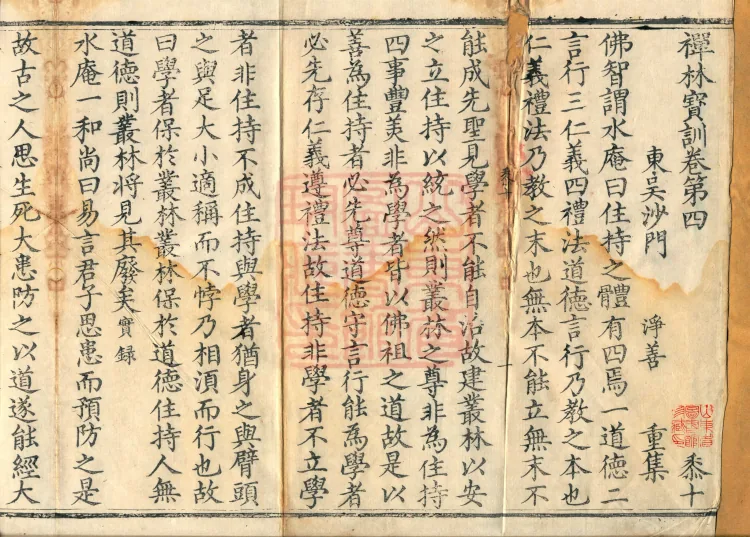 禪林寶訓卷第四 黍十
東吳沙門 淨善 重集
佛智謂水庵曰住持之體有四焉一道德二
言行三仁義四禮法道德言行乃教之本也
仁義禮法乃教之末也無本不能立無末不
能成先聖見學者不能自治故建叢林以安
之立住持以統之然則叢林之尊非為住持
四事豐美非為學者皆以佛祖之道故是以
善為住持者必先尊道德守言行能為學者
必先存仁義遵禮法故住持非學者不立學
者非住持不成住持與學者猶身之與臂頭
之與足大小適稱而不悖乃相湏而行也故
曰學者保於叢林叢林保於道德住持人無
道德則叢林將見其廢矣實錄
水庵一和尚曰易言君子思患而預防之是
故古之人思生死大患防之以道遂能經大